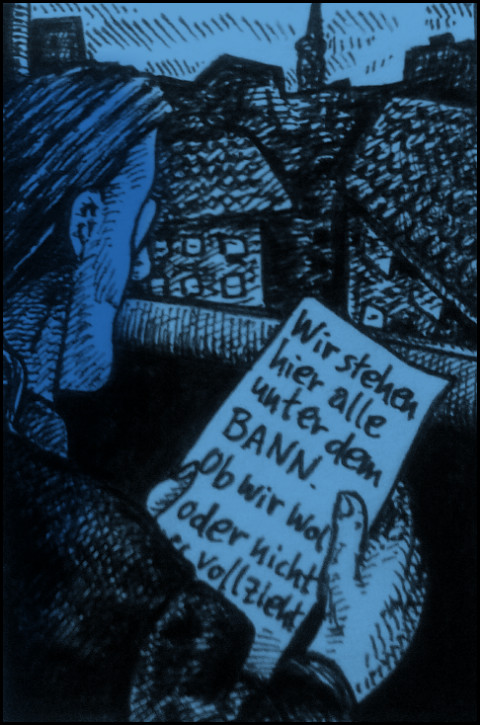 Wir stehen
hier alle
unter dem
BANN.
Ob wir wol
oder nicht
s vollzieht